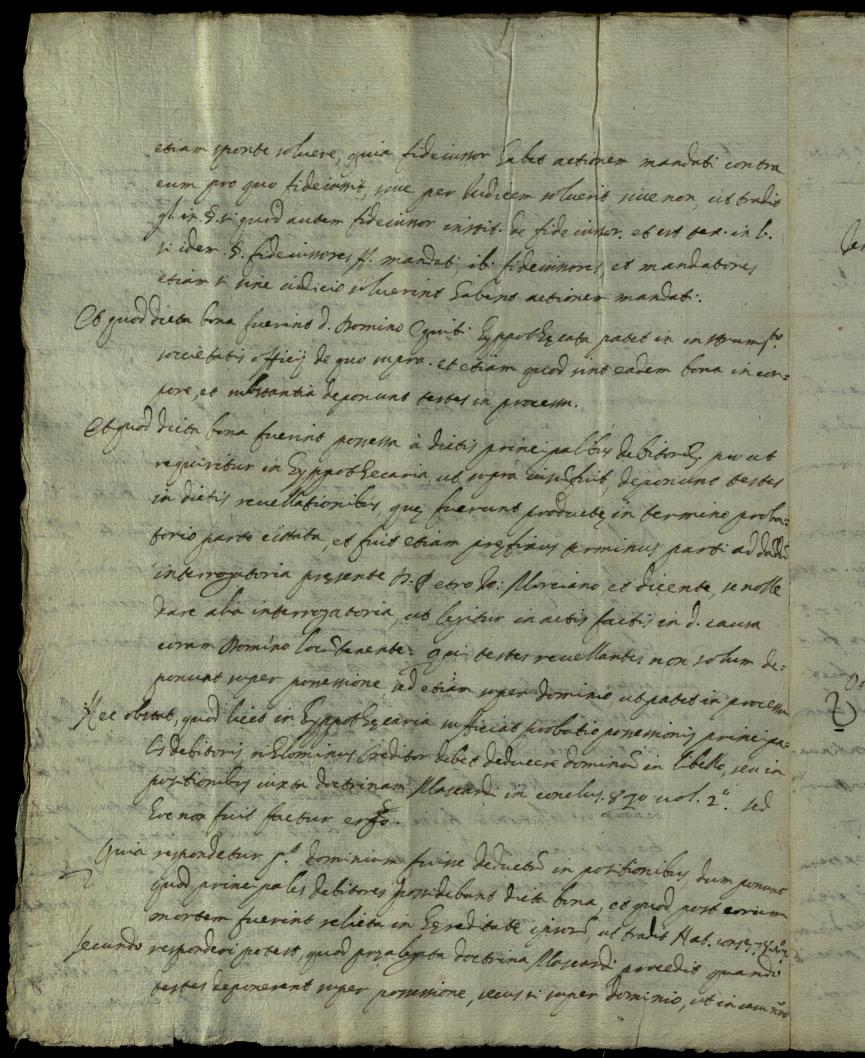 etiam sponte soluere, quia fideiussor habet actionem mandati contra
eum pro quo fideiussit, siue per Iudicem soluerit, siue non, ut tradit
gl. in §. si quod autem fideiussor instit. de fideiussor. et est tex. in l.
si idem §. fideiussores ff. mandati, ibi fideiussores, et mandatores
etiam si sine iudicio soluerint habent actionem mandati.
Et quod dicta bona fuerint d. Domino Equiti hyppothecata patet in instrum.to
societatis officij de quo supra. et etiam quod sint eadem bona in cor=
pore, et substantia deponunt testes in processu.
Et quod dicta bona fuerint possessa à dictis principalibus debitorib. prout
requiritur in hyppothecaria, ut supra deponunt testes
in dictis reuellationibus, quę fuerunt productę in termino proba=
torio parte citata, et fuit etiam pręfixus terminus parti ad dandũ
interrogatoria pręsente D. Petro Io: Morciano et dicente, se nolle
dare alia interrogatoria, ut legitur in actis factis in d. causa
coram Domino locũtenente. qui testes reuellantes non solum de=
ponunt super possessione, sed etiam super dominio ut patet in processu
Nec obstat, quod licet in hyppothecaria sufficiat probatio possessionis principa=
lis debitoris, nihilominus Creditor debet deducere dominiũ in libello, seu in
positionibus iuxta doctrinam Mascardi in conclus. 870 uol. 2.º sed
hoc non fuit factum ergo.
Quia respondetur p.º dominium fuisse deductũ in positionibus, dum ponunt
quod principales debitores possidebant dicta bona, et quod post eorum
mortem fuerint relicta in hęreditate ipsorũ, ut tradit Nat. cons.
Secundo responderi potest, quod pręalegata doctrina Mascardi procedit quando
testes deponerent super possessione, secus si super dominio, ut in casu nrõ